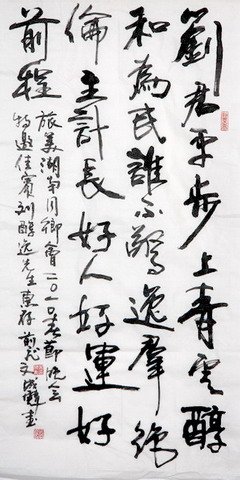 劉君平步上青雲醇
和為民誰不驚逸羣絕
倫主計長好人好運好
前程
旅美湖南同鄉會二〇一〇春節晚会
特邀佳賓刘醇逸先生惠存